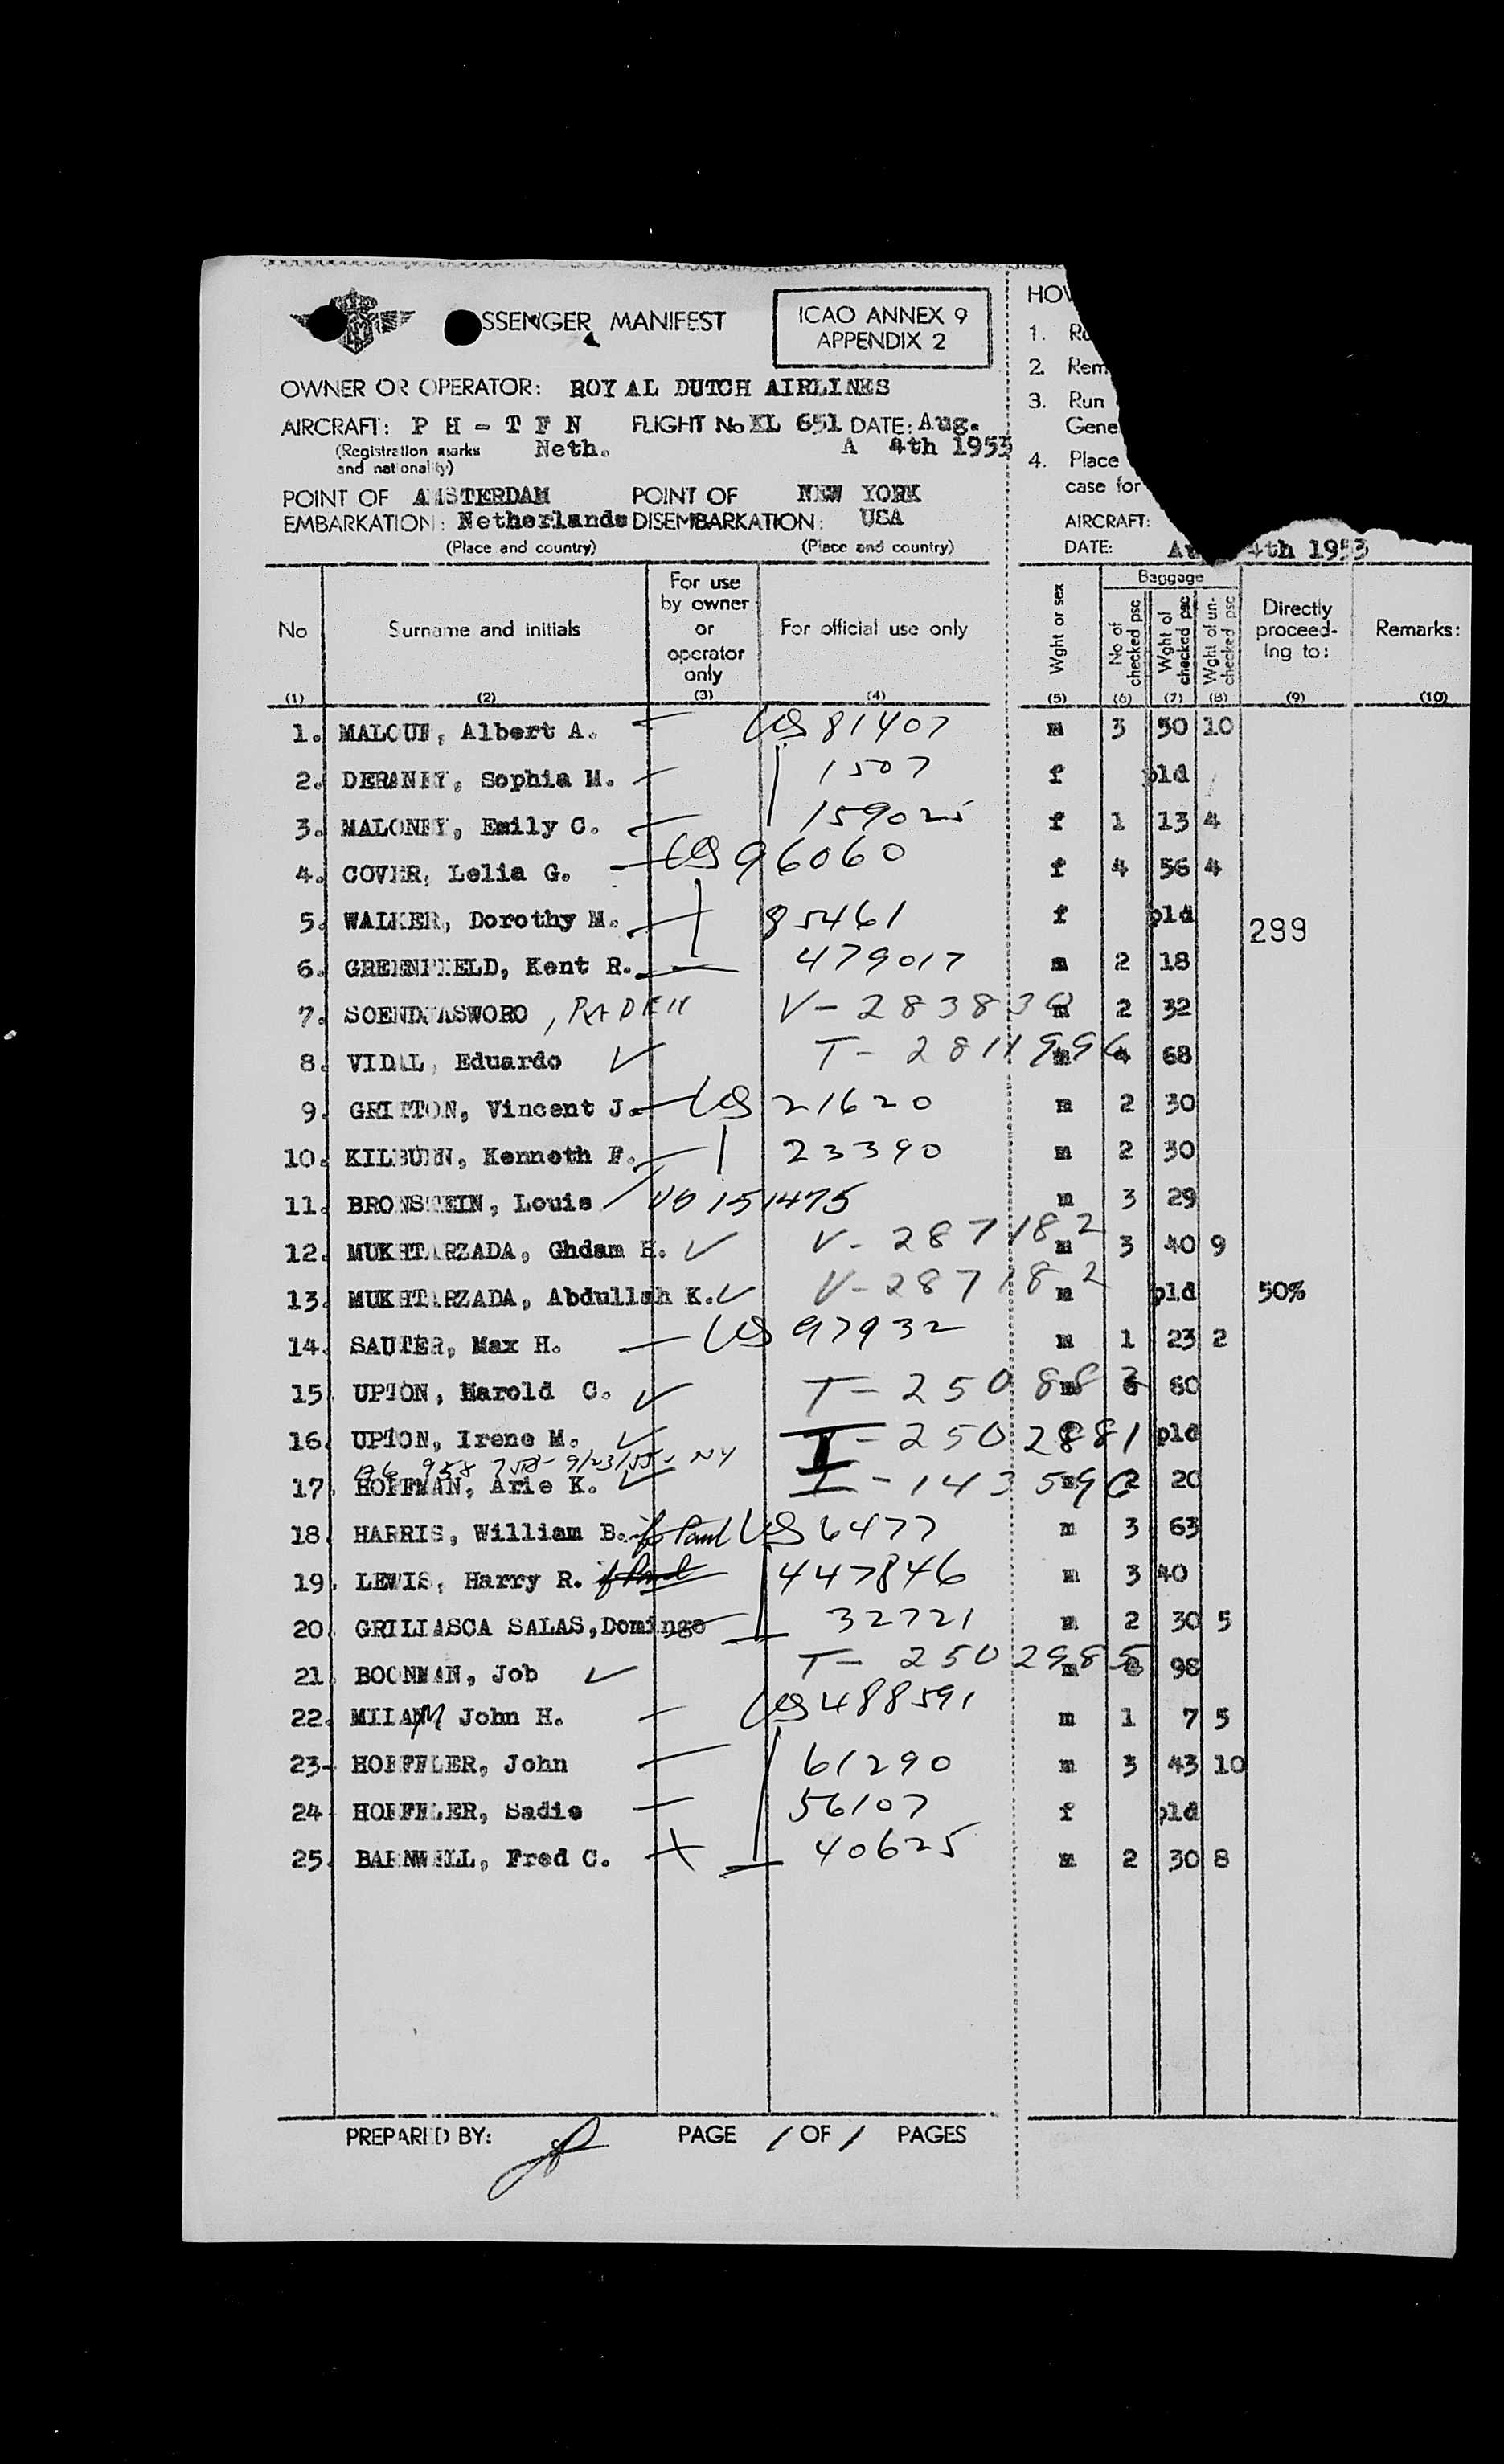 SSENGER MANIFEST
ICAO ANNEX 9
APPENDIX 2
OWNER OR OPERATOR: ROYAL DUTCH AIRLINES
AIRCRAFT: P H - T F N FLIGHT No KL 651 DATE: Aug.
(Registration marks and nationality) Neth. A 4th 1953
POINT OF EMBARKATION: AMSTERDAM Netherlands POINT OF DISEMBARKATION: NEW YORK USA
(Place and country) (Place and country)
HOW
1.
2. Rem
3. Run
Gene
4. Place
case for
AIRCRAFT:
DATE: 4th 1953
No Surname and initials For use by owner or operator only For official use only Wght or sex Baggage No of checked psc Wght of checked psc Wght of un-checked psc Directly proceed-ing to: Remarks:
(1) (2) (3) (4) (5) (6) (7) (8) (9) (10)
1. MALOUF, Albert A. US 81407 m 3 50 10
2. DERANEY, Sophia M. 1507 f pld
3. MALONEY, Emily C. 159025 f 1 13 4
4. COVER, Lelia G. US 96060 f 4 56 4
5. WALKER, Dorothy M. 85461 f pld 299
6. GREENFIELD, Kent R. 479017 m 2 18
7. SOENDJASWORO, RADEN V-283838 m 2 32
8. VIDAL, Eduardo ✓ T- m 4 68
9. GRITTON, Vincent J. US 21620 m 2 30
10. KILBURN, Kenneth F. 23390 m 2 30
11. BRONSTEIN, Louis US 151475 m 3 29
12. MUKHTARZADA, Ghdam H. ✓ V-287182 m 3 40 9
13. MUKHTARZADA, Abdullah K. ✓ V-287182 m pld 50%
14. SAUTER, Max H. US 97932 m 1 23 2
15. UPTON, Harold C. ✓ T-250 m 60
16. UPTON, Irene M. ✓ T-2502881 pld
17. HOFFMAN, Arie K. ✓ 2 20
18. HARRIS, William B. US 6477 m 3 63
19. LEWIS, Harry R. 447846 m 3 40
20. GRILLASCA SALAS, Domingo 32721 m 2 30 5
21. BOONMAN, Job ✓ T-2502985 m 98
22. MILAM John H. US 488591 m 1 7 5
23- HOEFFLER, John 61290 m 3 43 10
24 HOEFFLER, Sadie 56107 f pld
25. BARNWELL, Fred C. 40625 m 2 30 8
PREPARED BY: PAGE 1 OF 1 PAGES